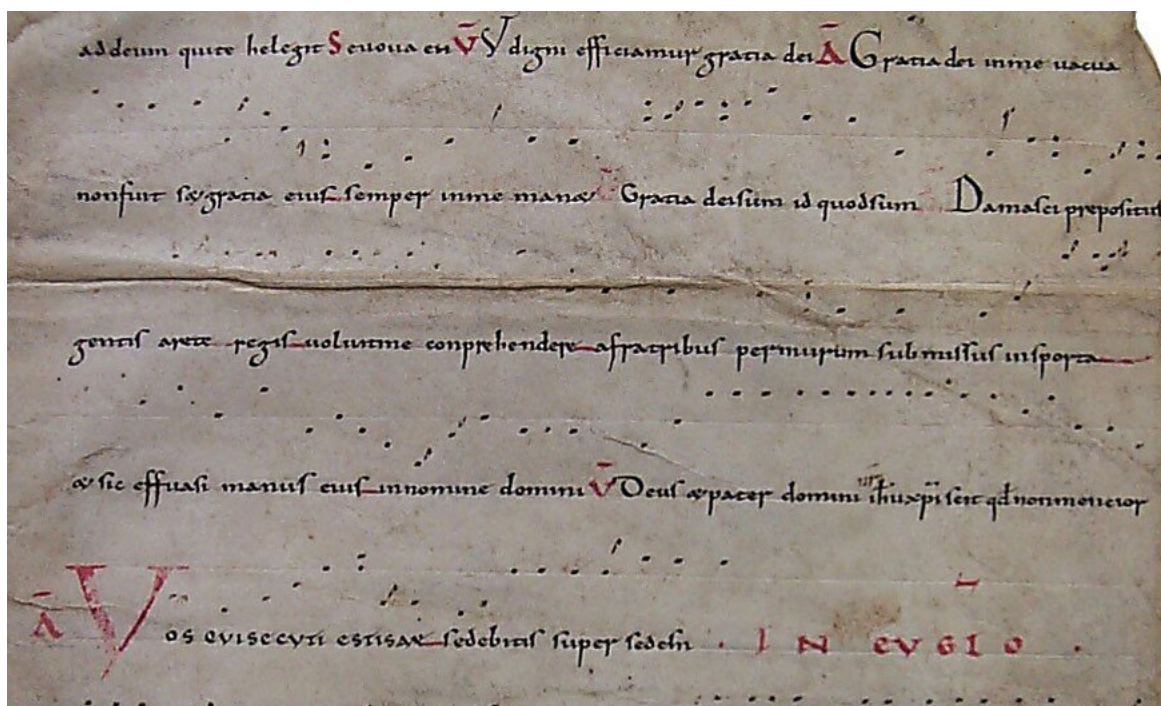 ad deum qui te helegit S evova eu V̄ V digni efficiamur gratia dei Ā Gratia dei in me vacua
non fuit s& gratia eius semper in me man& Gratia dei sum id quod sum Damasci prepositus
gentis arete regis voluit me conprehendere a fratribus per murum submissus in sporta
& sic effuasi manus eius in nomine domini V̄ Deus & pater domini ihu xpi scit qd non mencior
Ā Vos qui secuti estis me sedebitis super sedeſ · IN EVGLO ·